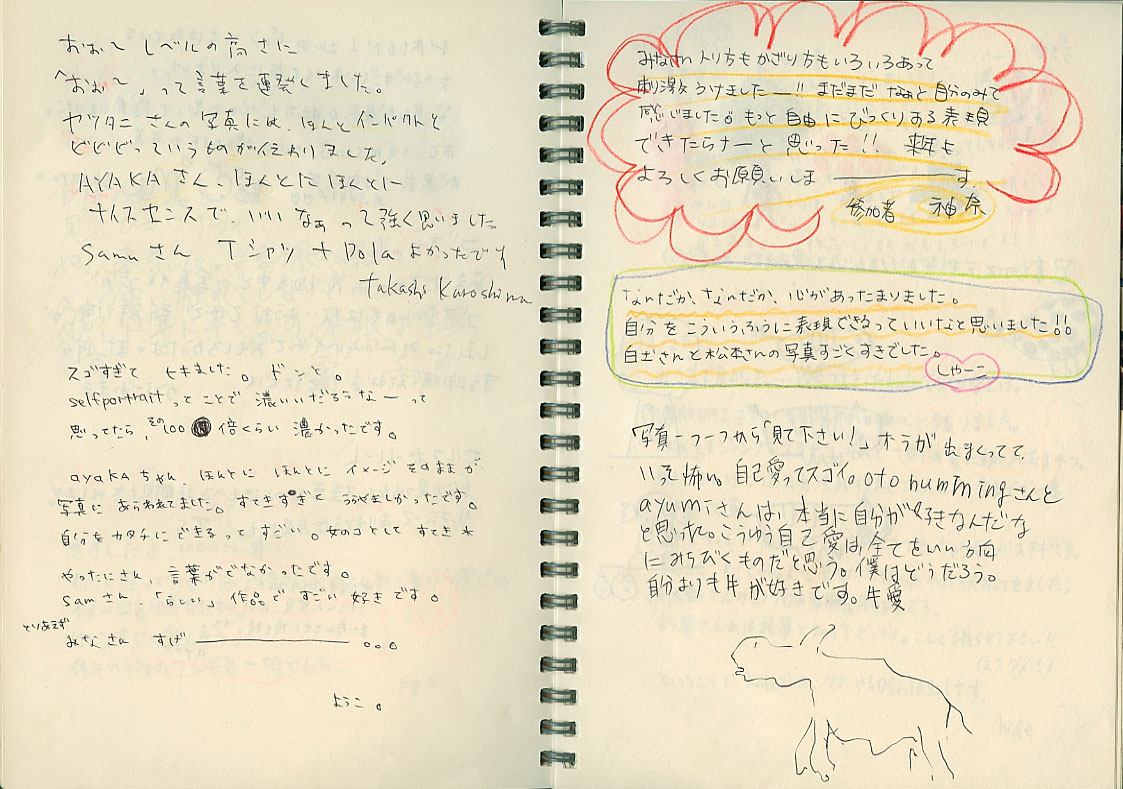 おぉ〜 レベルの高さに
「おぉ〜」って言葉を連発しました。
ヤツタニさんの写真には、ほんとインパクトと
どどどっていうものが伝わりました。
AYAKAさん、ほんとに ほんとに
ナイスセンスで、いいなぁって強く思いました
Samuさん Tシャツ+Polaよかったです
takashi Kuroshima
スゴすぎて ヒキました。ドンと。
selfportraitってことで 濃いいだろうなーって
思ってたら、その100倍くらい 濃かったです。
ayakaちゃん ほんとに ほんとに イメージそのままが
写真に あらわれてました。すてきすぎて うらやましかったです。
自分をカタチにできるってすごい。女のコとして すてき*
やったにさん、言葉がでなかったです。
samさん 「らしい」作品で すごい 好きです。
とりあえず
みなさん すげ――――――。。。
ようこ。
みなさん入り方もかざり方もいろいろあって
刺激うけましたー!! まだまだ なぁと自分のみて
感じました。もっと自由にびっくりある表現
できたらナーと思った!! 来年も
よろしくお願いしま――――す。
参加者 神奈
なんだか、なんだか、心があったまりました。
自分をこういうふうに表現できるっていいなと思いました!!
白土さんと松本さんの写真すごくすきでした。
しゃーこ
写真一つ一つから「見て下さい!」オーラが出まくってて
いっそ怖い。自己愛ってスゴイ。oto hummingさんと
ayumiさんは、本当に自分が好きなんだな
と思った。こうゆう自己愛は、全てをいい方向
にみちびくものだと思う。僕はどうだろう。
自分よりも牛が好きです。牛愛